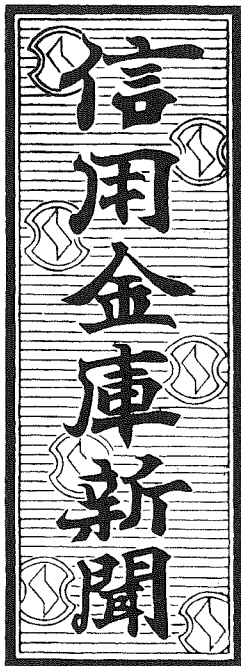 信用金庫新聞